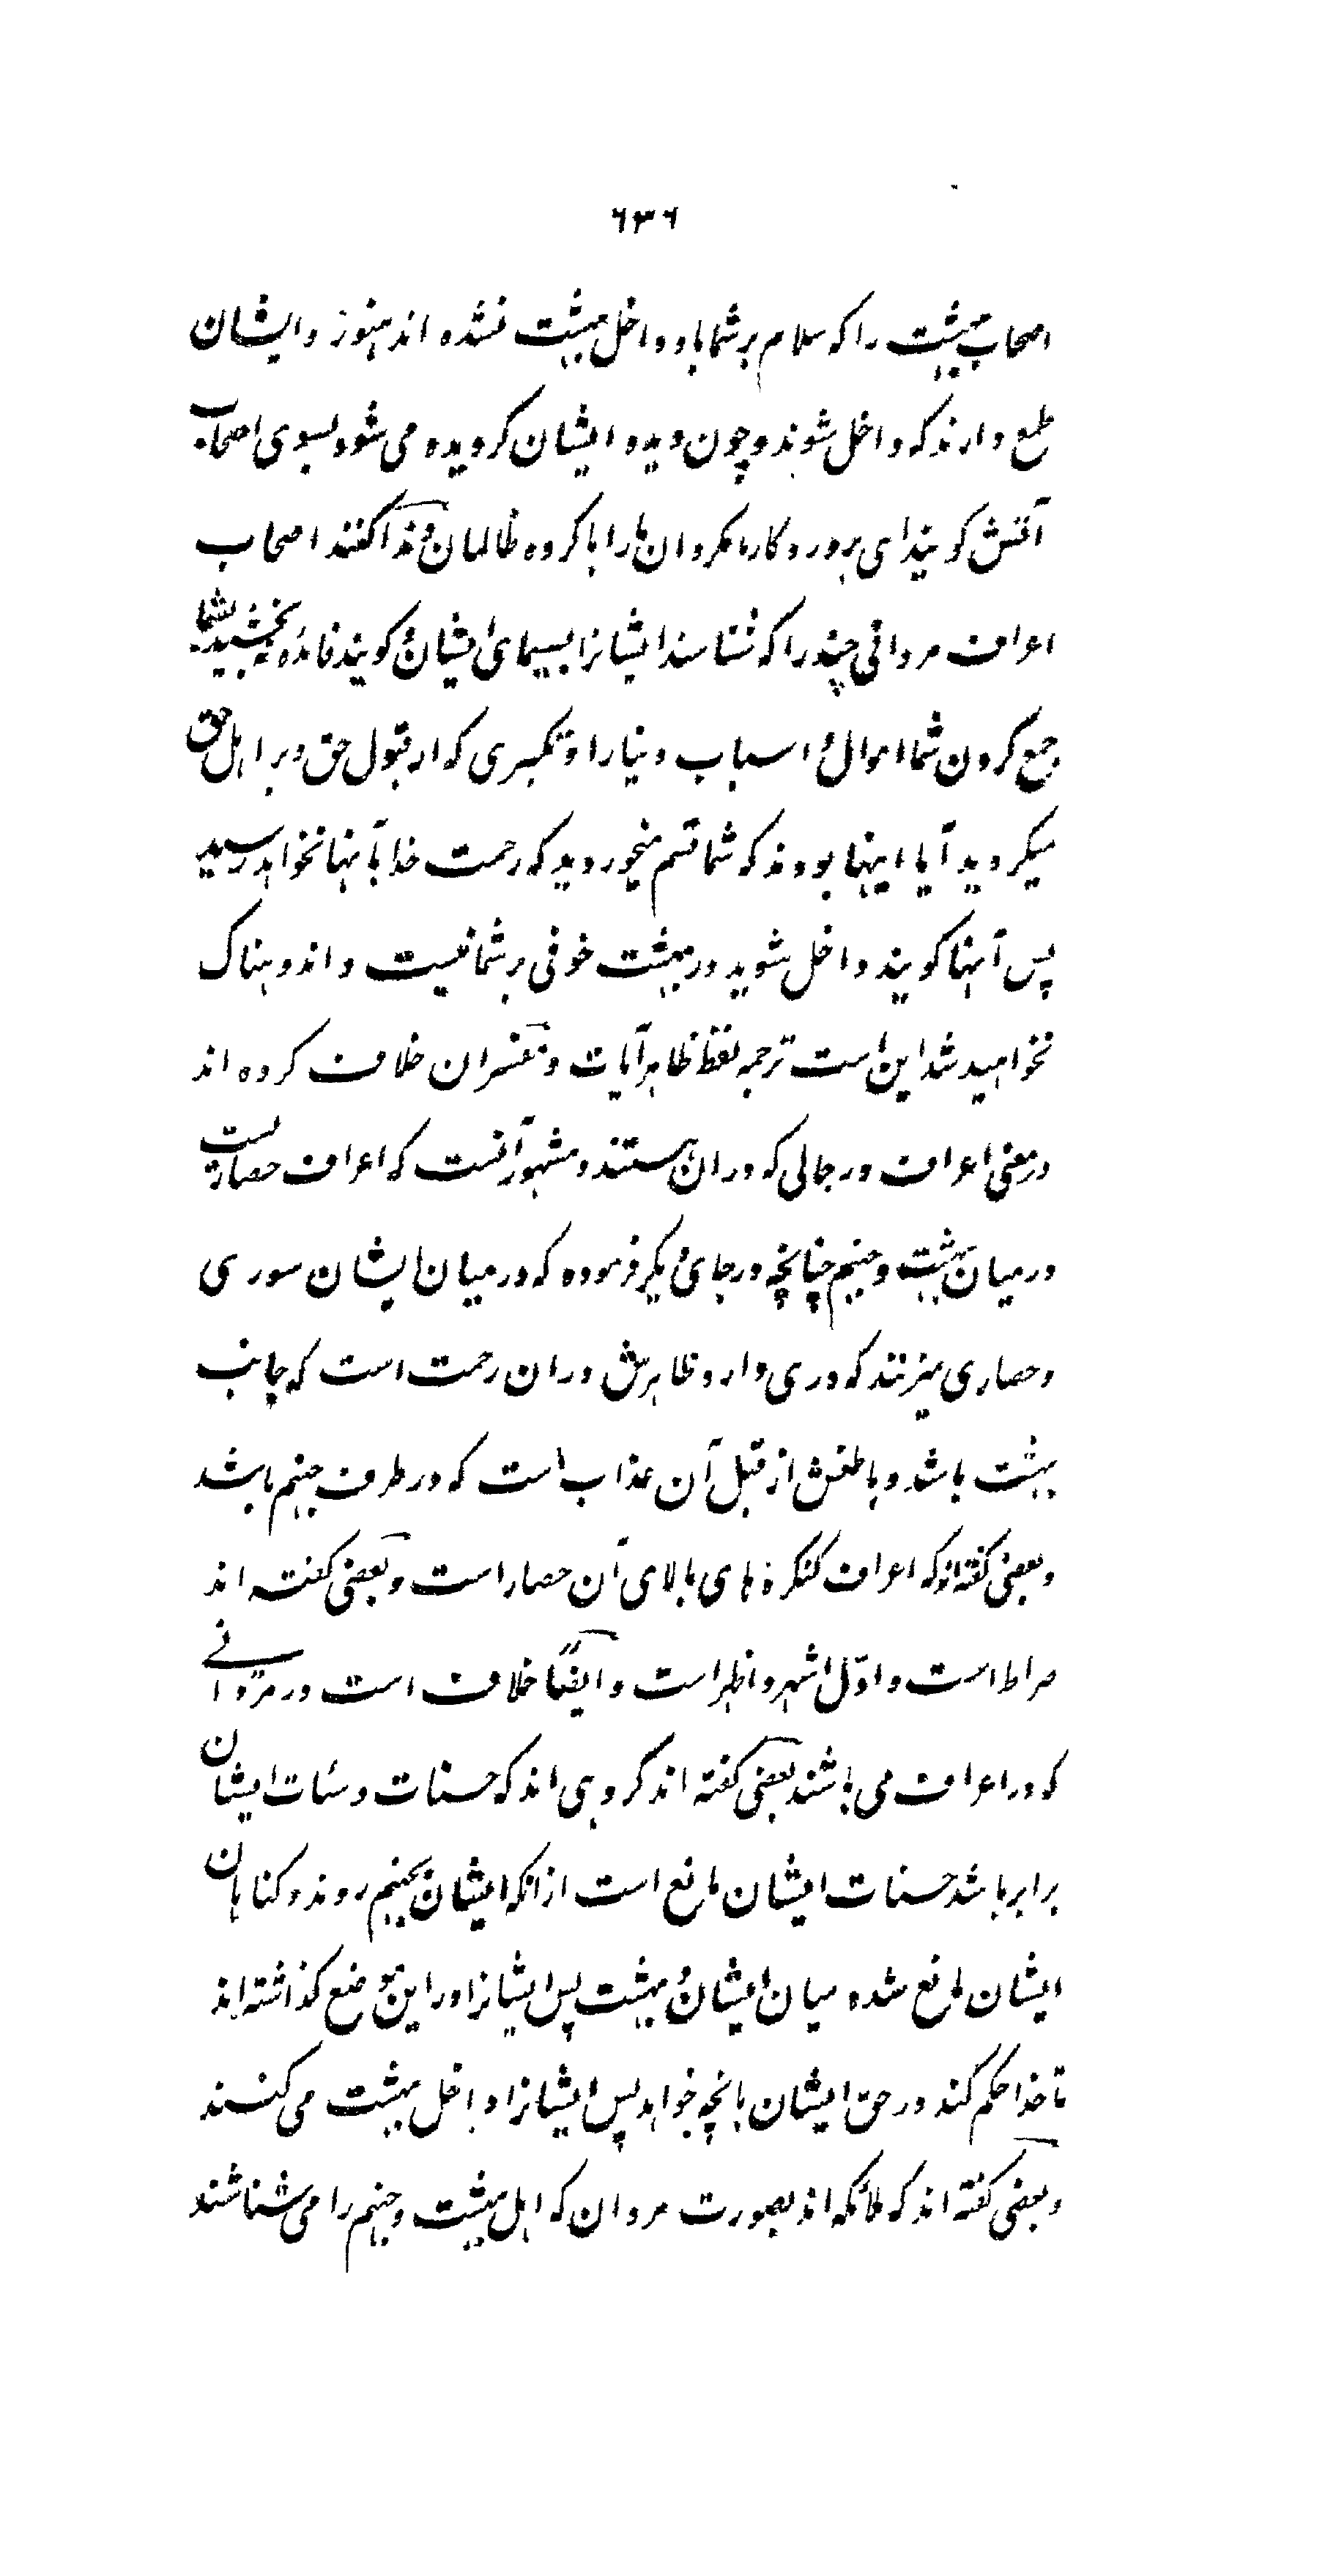 ٦٣٦
اصحاب بهشت را که سلام بر شما باد و داخل بهشت نشده اند هنوز و ایشان
طمع دارند که داخل شوند و چون دیده ایشان کردیده می شود بسوی اصحاب
آتش کویند ای پروردکار ما مکردان ما را با کروه ظالمان و ندا کنند اصحاب
اعراف مردانی چند را که شناسند ایشانرا بسیمای ایشان کویند فائده نبخشید بشما
جمع کردن شما اموال و اسباب دنیا را و تکبری که از قبول حق و بر اهل حق
میکردید آیا اینها بودند که شما قسم میخوردید که رحمت خدا بآنها نخواهد رسید
پس آنها کویند داخل شوید در بهشت خوفی بر شما نیست و اندوهناک
نخواهید شد این است ترجمه لفظ ظاهر آیات و مفسران خلاف کرده اند
در معنی اعراف و رجالی که در ان هستند و مشهور آنست که اعراف حصاریست
در میان بهشت و جهنم چنانچه در جائ دیکر فرموده که در میان ایشان سوری
و حصاری میزنند که دری دارد و ظاهرش در ان رحمت است که جانب
بهشت باشد و باطنش از قبل آن عذاب است که در طرف جهنم باشد
و بعضی کفته اند که اعراف کنکره های بالای آن حصار است و بعضی کفته اند
صراط است و اوّل اشهر و اظهر است و ایضًا خلاف است در مردانے
که در اعراف می باشند بعضی کفته اند کروهی اند که حسنات و سئات ایشان
برابر باشد حسنات ایشان مانع است از انکه ایشان بجهنم روند و کناهان
ایشان مانع شده میان ایشان و بهشت پس ایشانرا در این موضع کذاشته اند
تا خدا حکم کند در حق ایشان بانچه خواهد پس ایشانرا داخل بهشت می کنند
و بعضی کفته اند که ملائکه اند بصورت مردان که اهل بهشت و جهنم را می شناشند